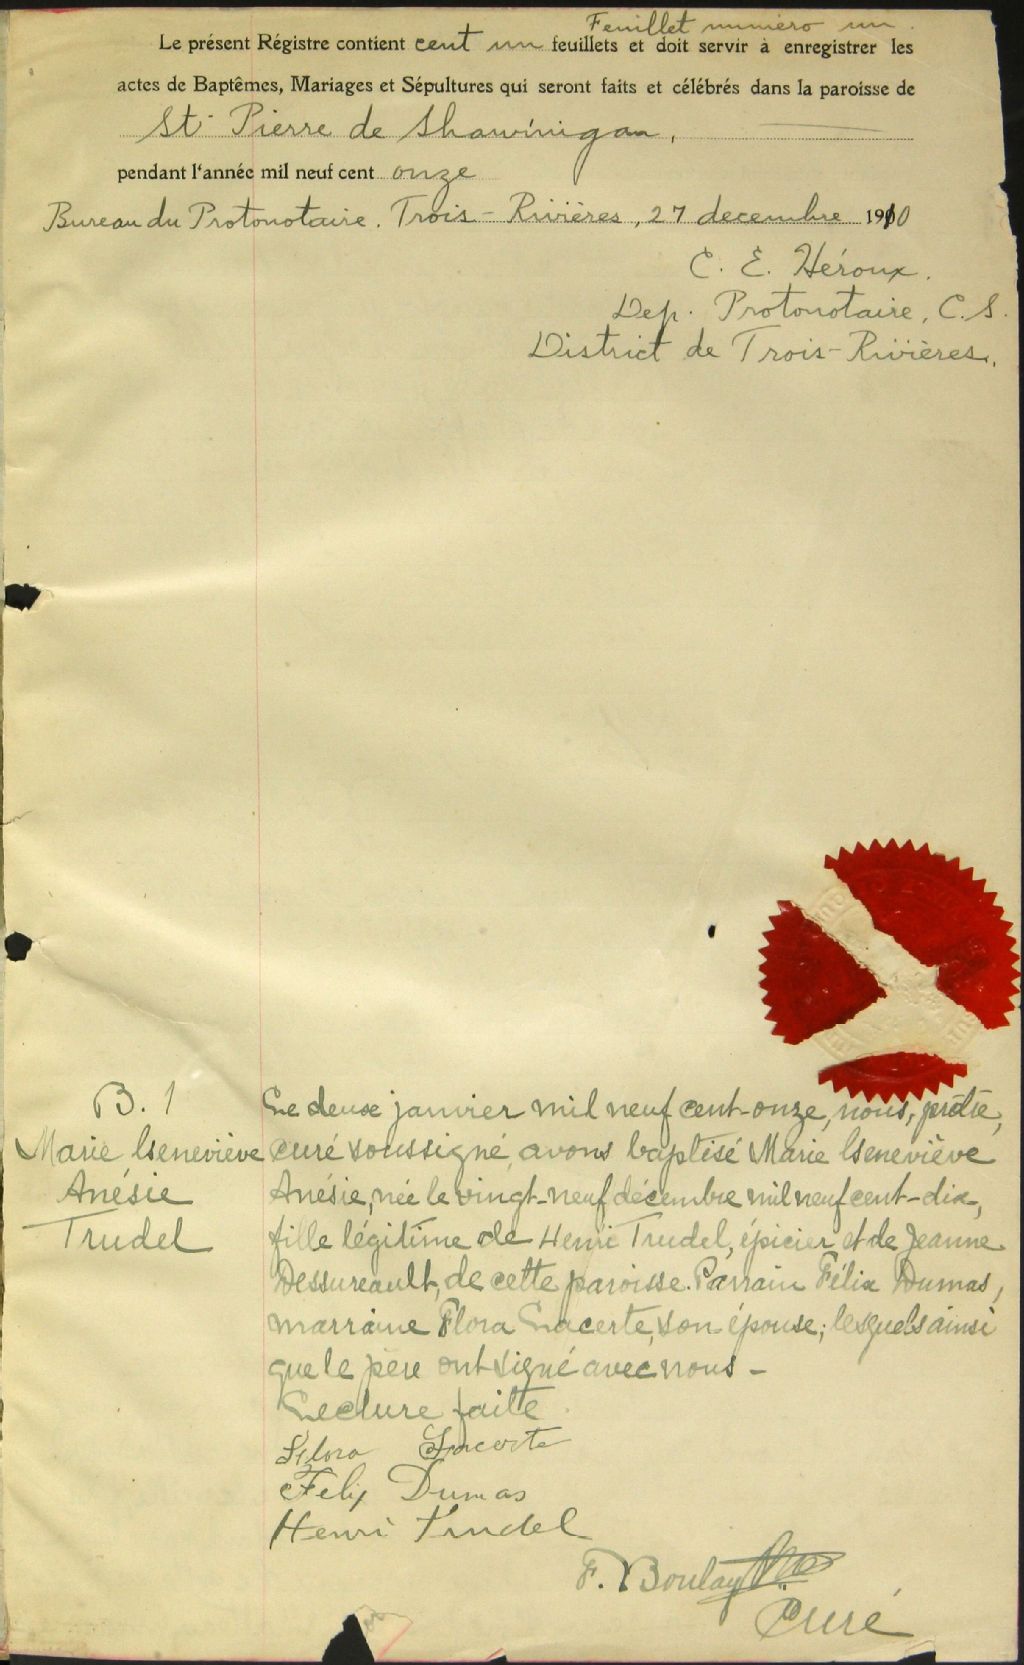 Feuillet numéro un.
Le présent Régistre contient cent un feuillets et doit servir à enregistrer les
actes de Baptêmes, Mariages et Sépultures qui seront faits et célébrés dans la paroisse de
St-Pierre de Shawinigan,
pendant l'année mil neuf cent onze
Bureau du Protonotaire. Trois-Rivières, 27 decembre 1910
C. E. Héroux.
Dep. Protonotaire, C. S.
District de Trois-Rivières.
B. 1
Marie Geneviève
Anésie
Trudel
Le deux janvier mil neuf cent-onze, nous, prêtre,
curé soussigné, avons baptisé Marie Geneviève
Anésie, née le vingt-neuf décembre mil neuf cent-dix,
fille légitime de Henri Trudel, épicier et de Jeanne
Dessureault, de cette paroisse. Parrain Félix Dumas,
marraine Flora Lacerte, son épouse; lesquels ainsi
que le père ont signé avec nous-
Lecture faite.
Flora Lacerte
Felix Dumas
Henri Trudel
F. Boulay
Curé